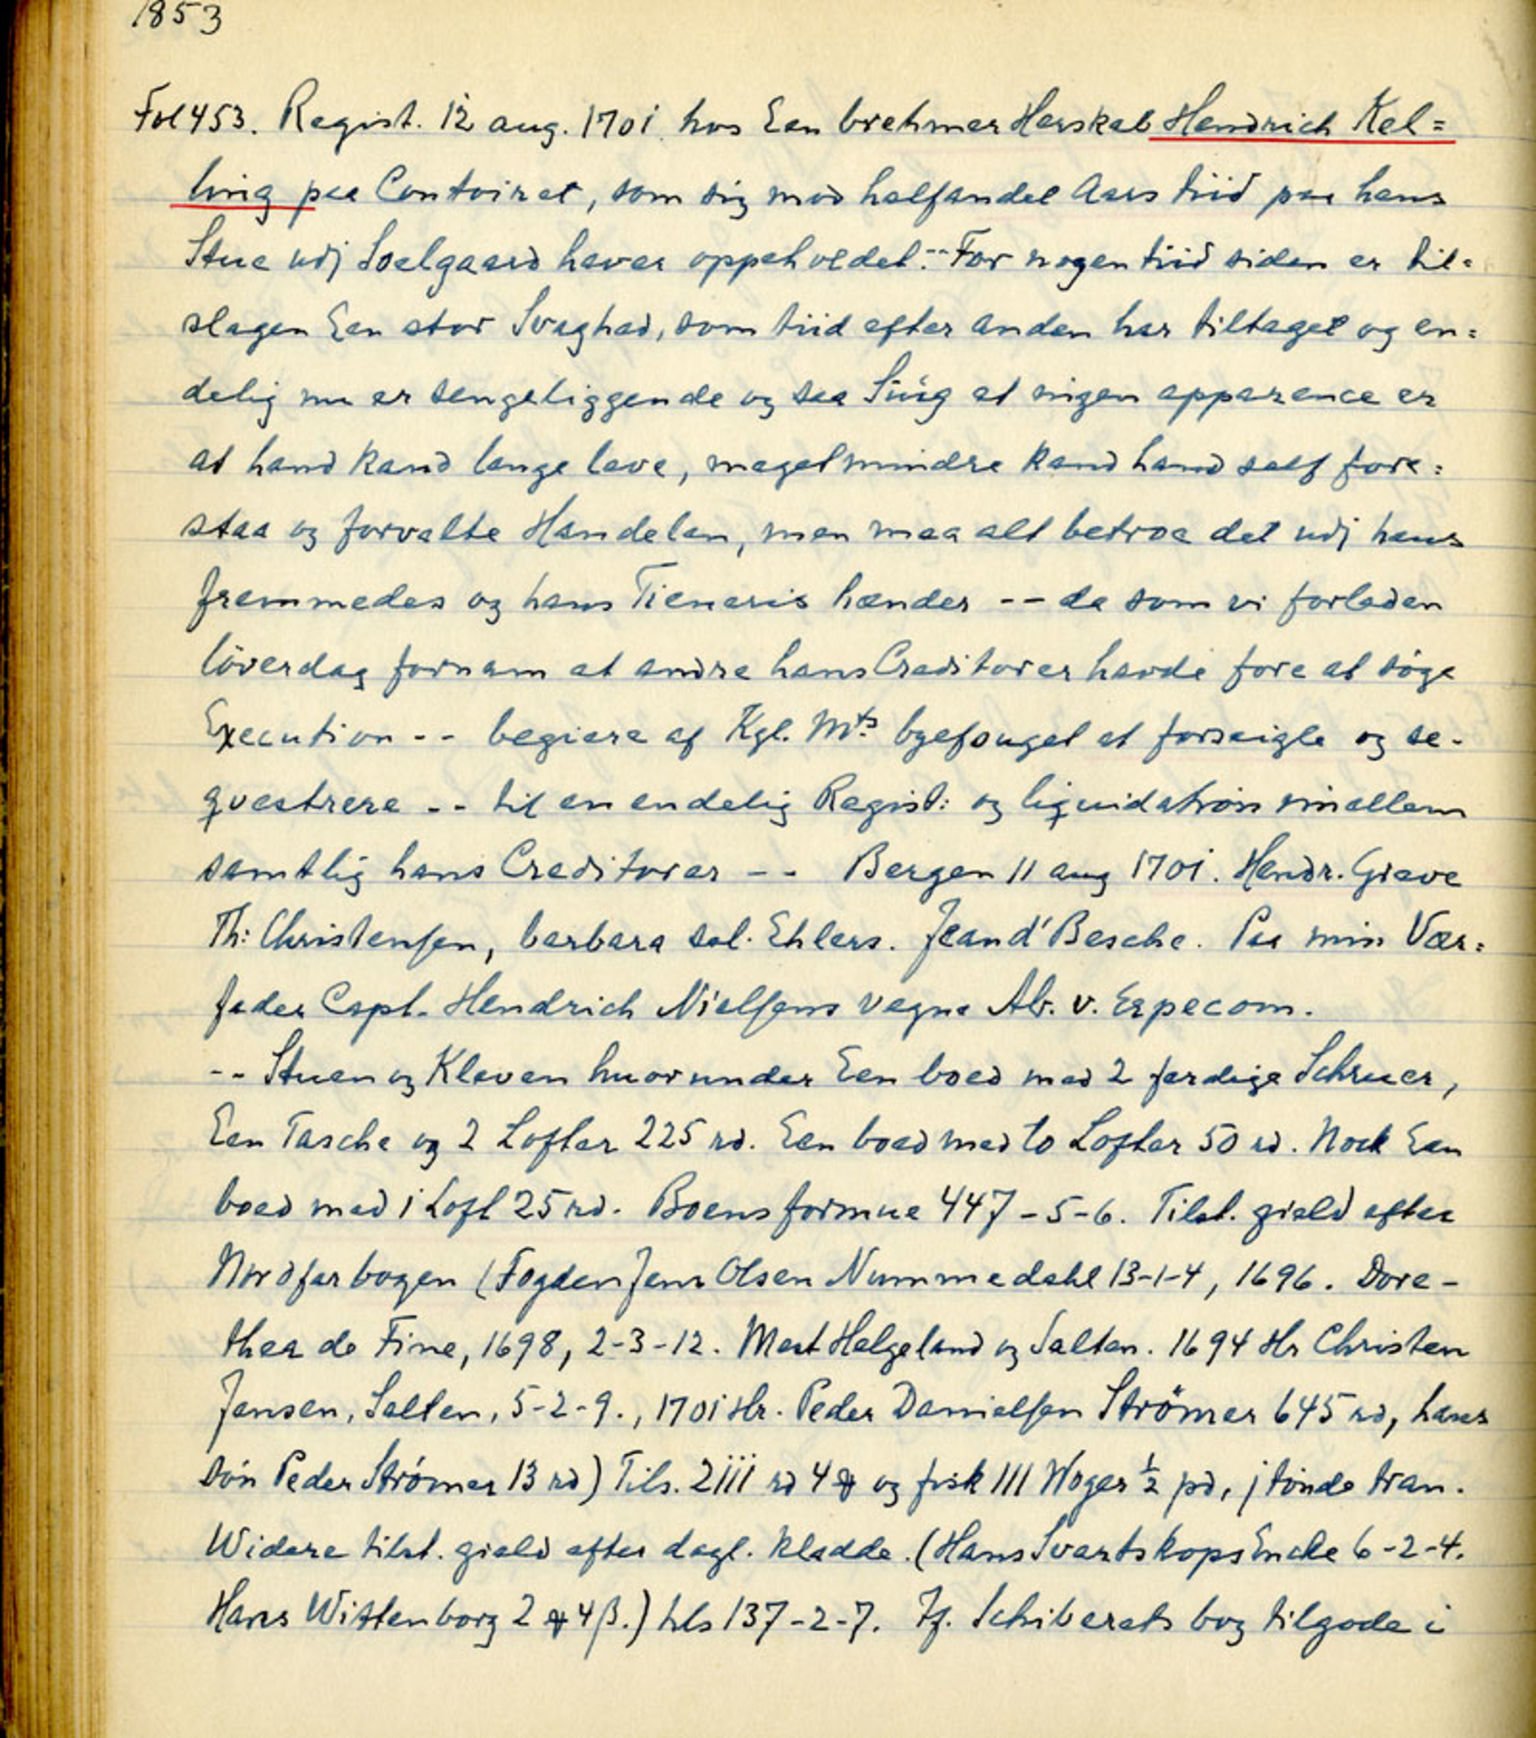 1853
Fol 453. Regist. 12 aug. 1701 hos Een brehmer Herskab Hendrich Kel=
ling paa Contoiret, som sig mod halfandet Aars tiid paa hans
Stue udj Soelgaard haver oppeholdet. -- For nogen tiid siden er til=
slagen Een stor Svaghed, som tiid efter anden har tiltaget og en=
delig nu er sengeliggende og saa Siug at ingen apparence er
at hand kand lenge leve, meget mindre kand hand self fore=
staa og forvalte Handelen, men maa alt betroe det udj hans
fremmedes og hans Tieneris hænder -- da som vi forleden
löverdag fornam at andre hans Creditorer havde fore at søge
Execution -- begiere af Kgl. Mts. byefouget at forseigle og se-
qvestrere -- til en endelig Regist: og liquidation imellem
samtlig hans Creditorer -- Bergen 11 aug 1701. Hendr. Greve
Th: Christensen, barbara sal. Ehlers. Jean d'Besche. Paa min Vær=
fader Capt. Hendrich Nielsens vegne Ab. v. Erpecom.
-- Stuen og Kleven huorunder Een boed med 2 ferdige Schruer,
Een Tasche og 2 Lofter 225 rd. Een boed med to Lofter 50 rd. Nock Een
boed med 1 Loft 25 rd. Boens formue 447-5-6. Tilst. gield efter
Nordfarbogen (Fogden Jens Olsen Nummedahl 13-1-4, 1696. Dore-
thea de Fine, 1698, 2-3-12. Mest Helgeland og Salten. 1694 Hr Christen
Jensen, Salten, 5-2-9., 1701 Hr. Peder Danielsen Strömer 645 rd, hans
søn Peder Strömer 13 rd) Tils. 2111 rd 4 og fisk 111 Woger ½ pd, j tønde tran.
Widere tilst. gield efter dagl. kladde. (Hans Svartskops Encke 6-2-4.
Hans Wittenborg 2 4 β.) tils 137-2-7. If. Schiberets bog tilgode i